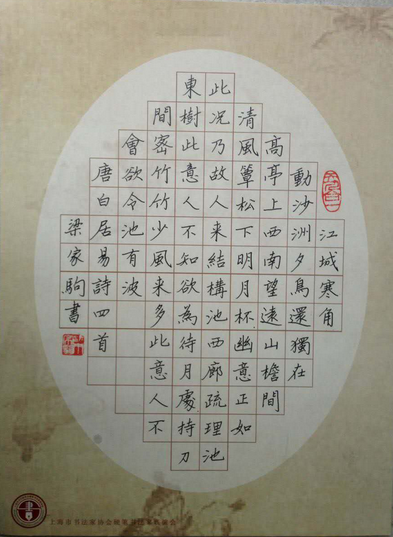 江城寒角
動沙洲夕鳥還獨在
高亭上西南望遠山檐間
清風簟松下明月杯幽意正如
此况乃故人来結構池西廊疏理池
東樹此意人不如欲為待月處持刀
間密竹竹少風来多此意人不
會欲令池有波
唐白居易詩四首
梁家駒書
上海市书法家协会硬笔书法